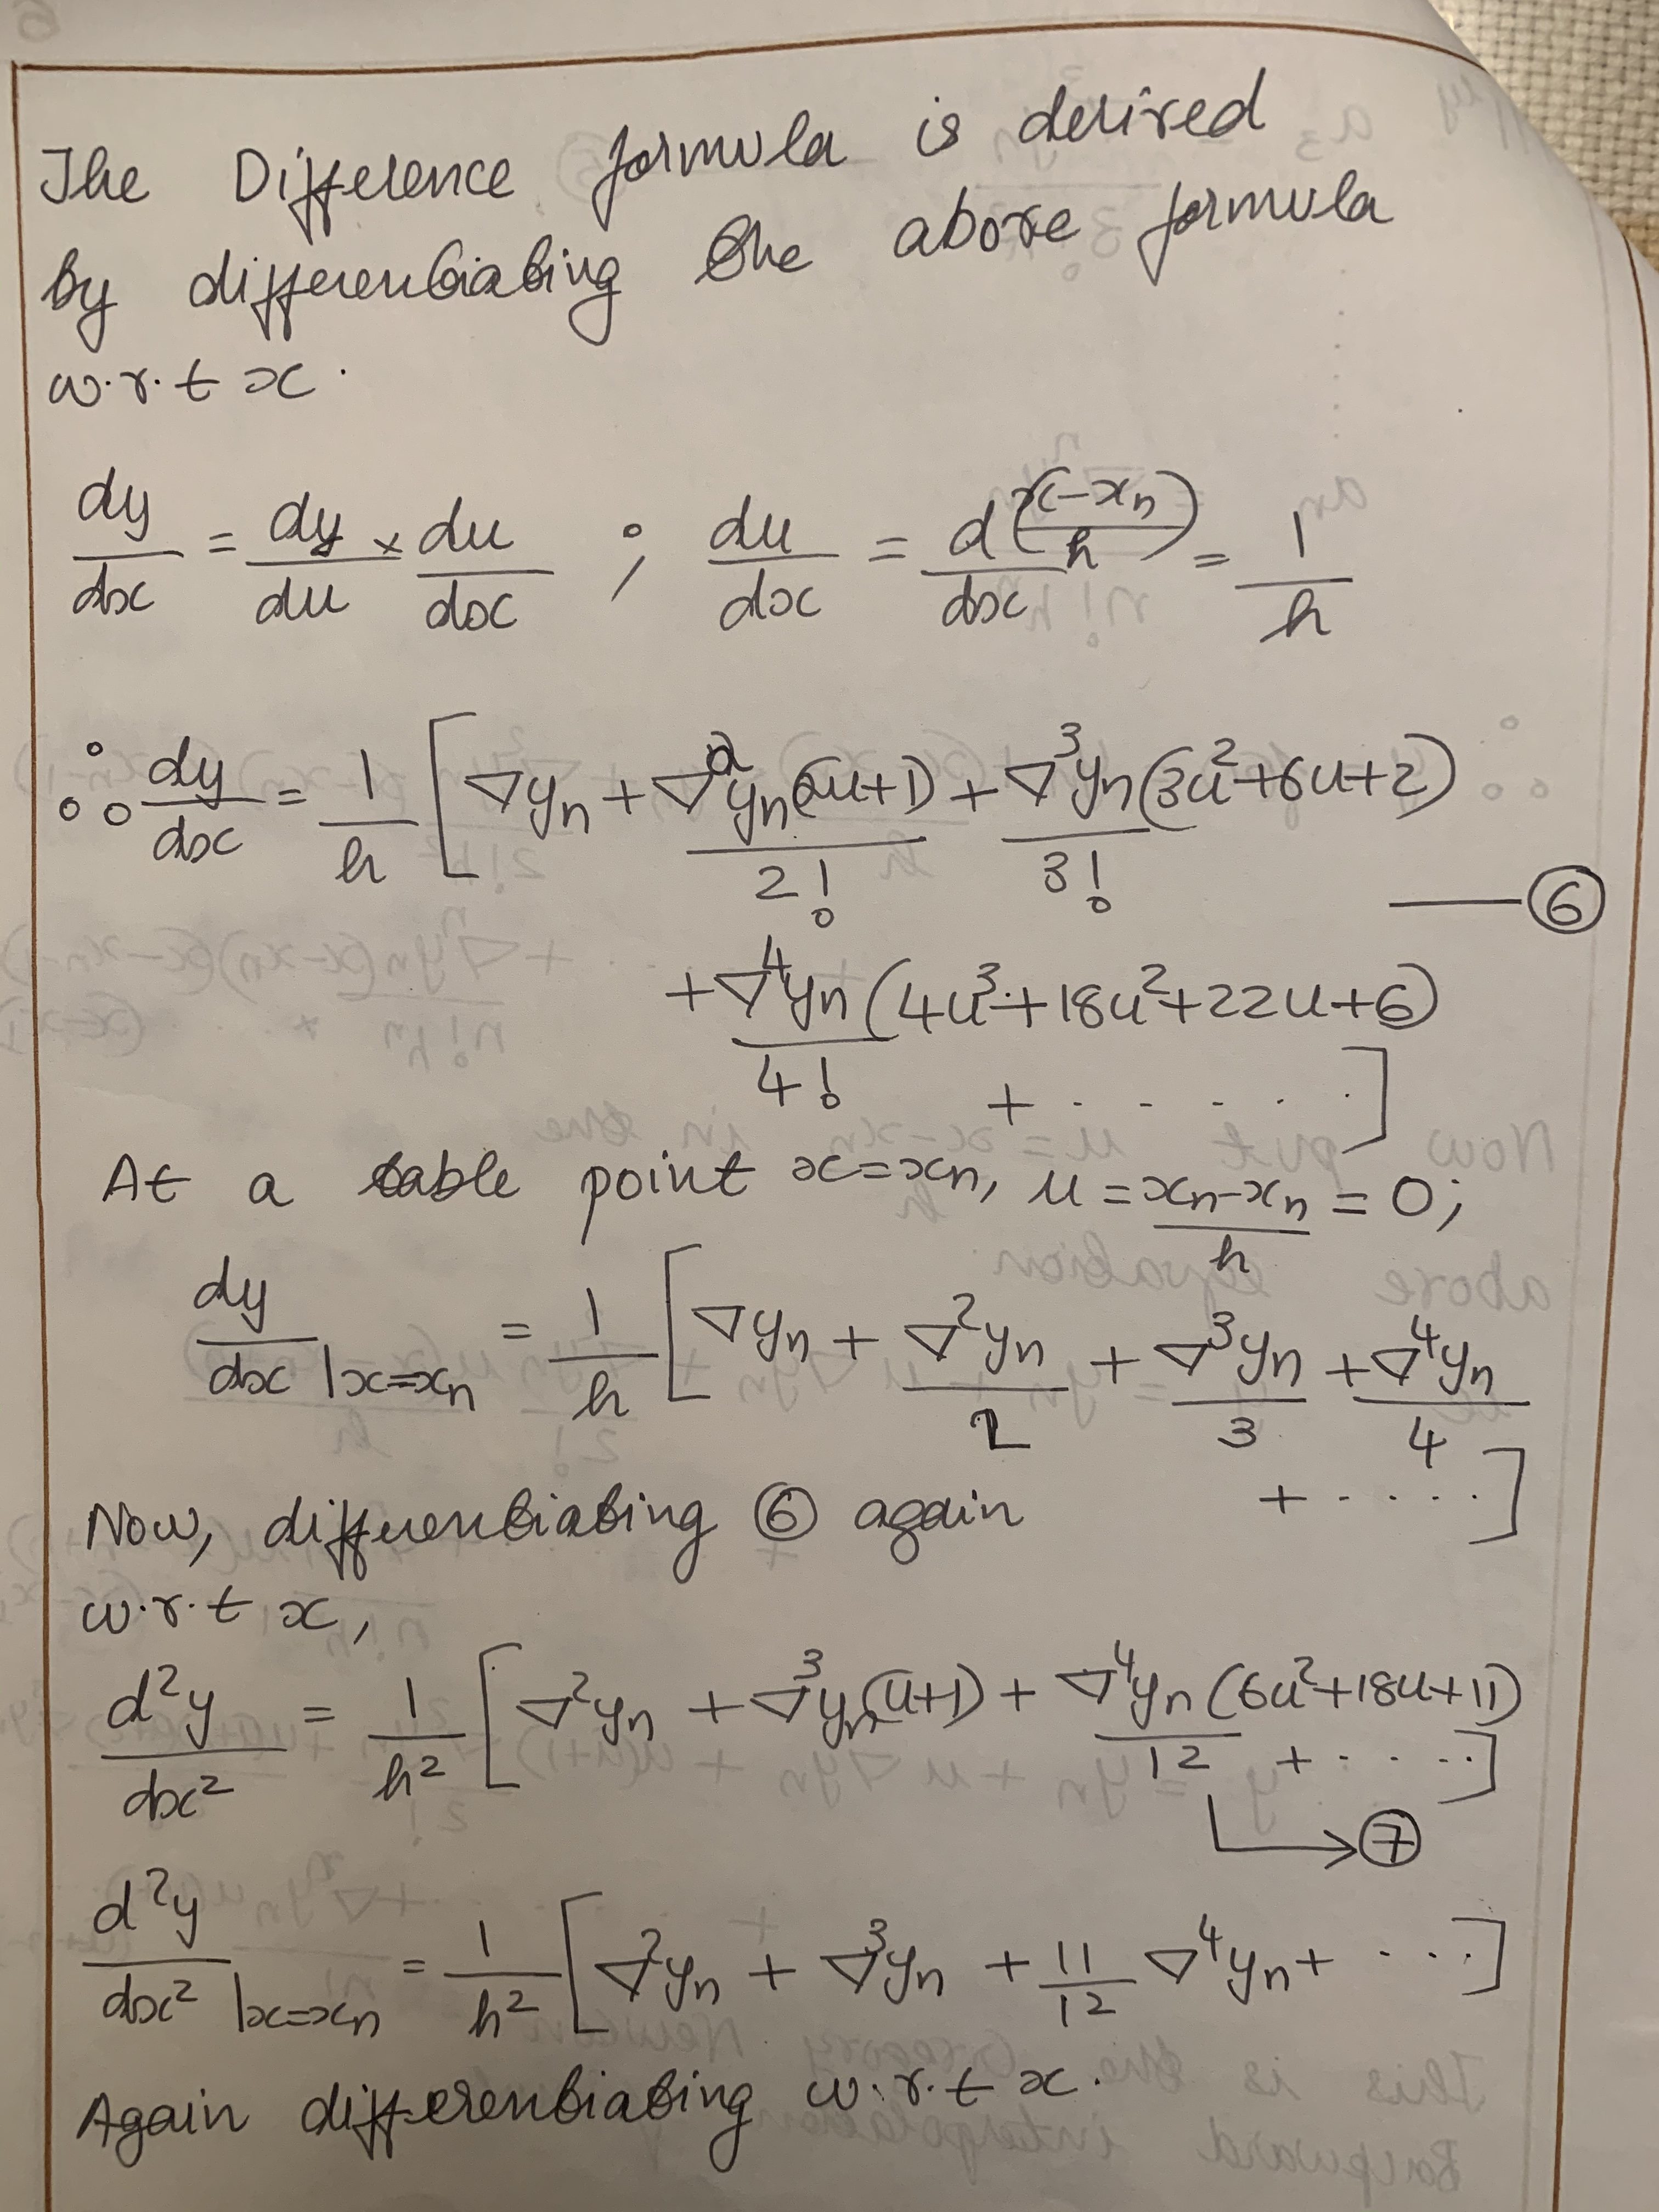 The Difference formula is derived
by differentiating the above formula
w.r.t x.
dy/dx = dy/du × du/dx ; du/dx = d/dx((x-xn)/h) = 1/h
∴ dy/dx = 1/h [∇yn + ∇²yn(2u+1)/2! + ∇³yn(3u²+6u+2)/3!
—— ⑥
+ ∇⁴yn(4u³+18u²+22u+6)/4!
+ . . . . . ]
At a table point x=xn, u = (xn-xn)/h = 0;
dy/dx |x=xn = 1/h [∇yn + ∇²yn/2 + ∇³yn/3 + ∇⁴yn/4
+ . . . . . ]
Now, differentiating ⑥ again
w.r.t x,
d²y/dx² = 1/h² [∇²yn + ∇³yn(u+1) + ∇⁴yn(6u²+18u+11)/12 + . . . . ]
→ ⑦
d²y/dx² |x=xn = 1/h² [∇²yn + ∇³yn + 11/12 ∇⁴yn + . . . . ]
Again differentiating w.r.t x.